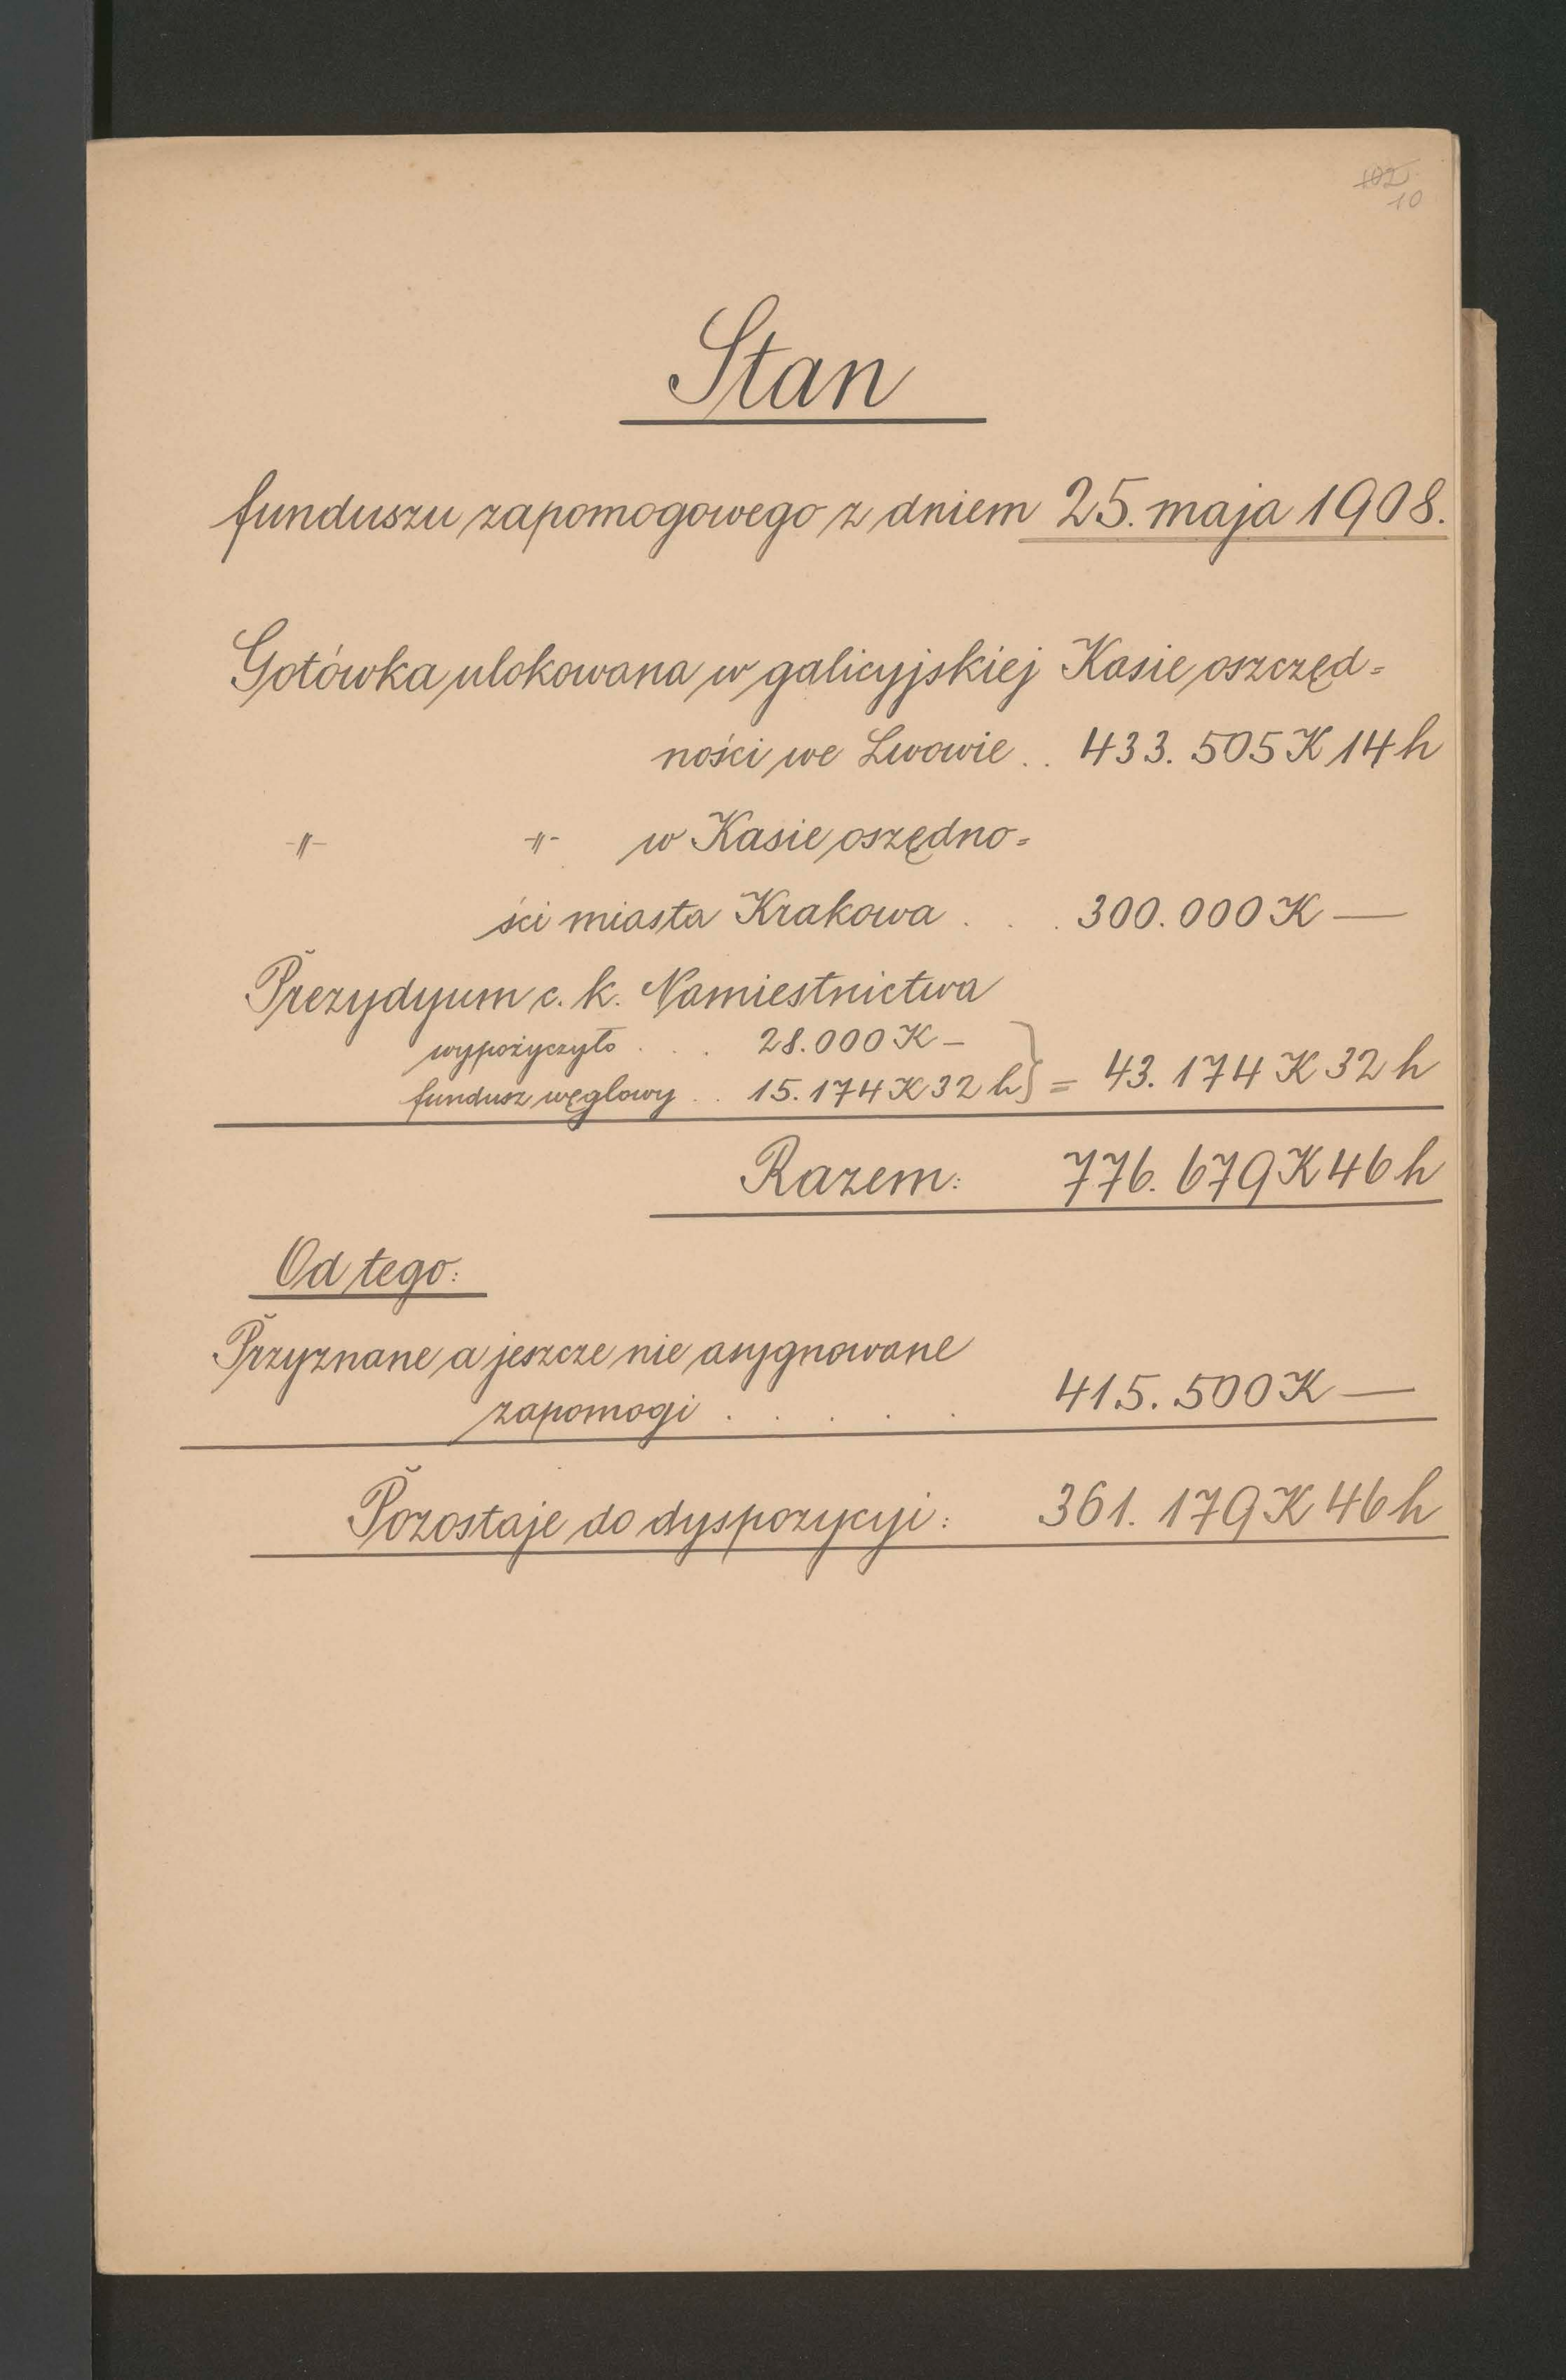 102.
10
Stan
funduszu zapomogowego z dniem 25. maja 1908.
Gotówka ulokowana w galicyjskiej Kasie oszczęd=
ności we Lwowie . . 433.505 K 14 h
-〃- -〃- w Kasie oszędno=
ści miasta Krakowa . . . 300.000 K —
Prezydyum c. k. Namiestnictwa
wypożyczyło . . . 28.000 K —
fundusz węglowy . . 15.174 K 32 h } = 43.174 K 32 h
Razem: 776.679 K 46 h
Od tego:
Przyznane a jeszcze nie asygnowane
zapomogi . . . . . 415.500 K —
Pozostaje do dyspozycyi: 361.179 K 46 h